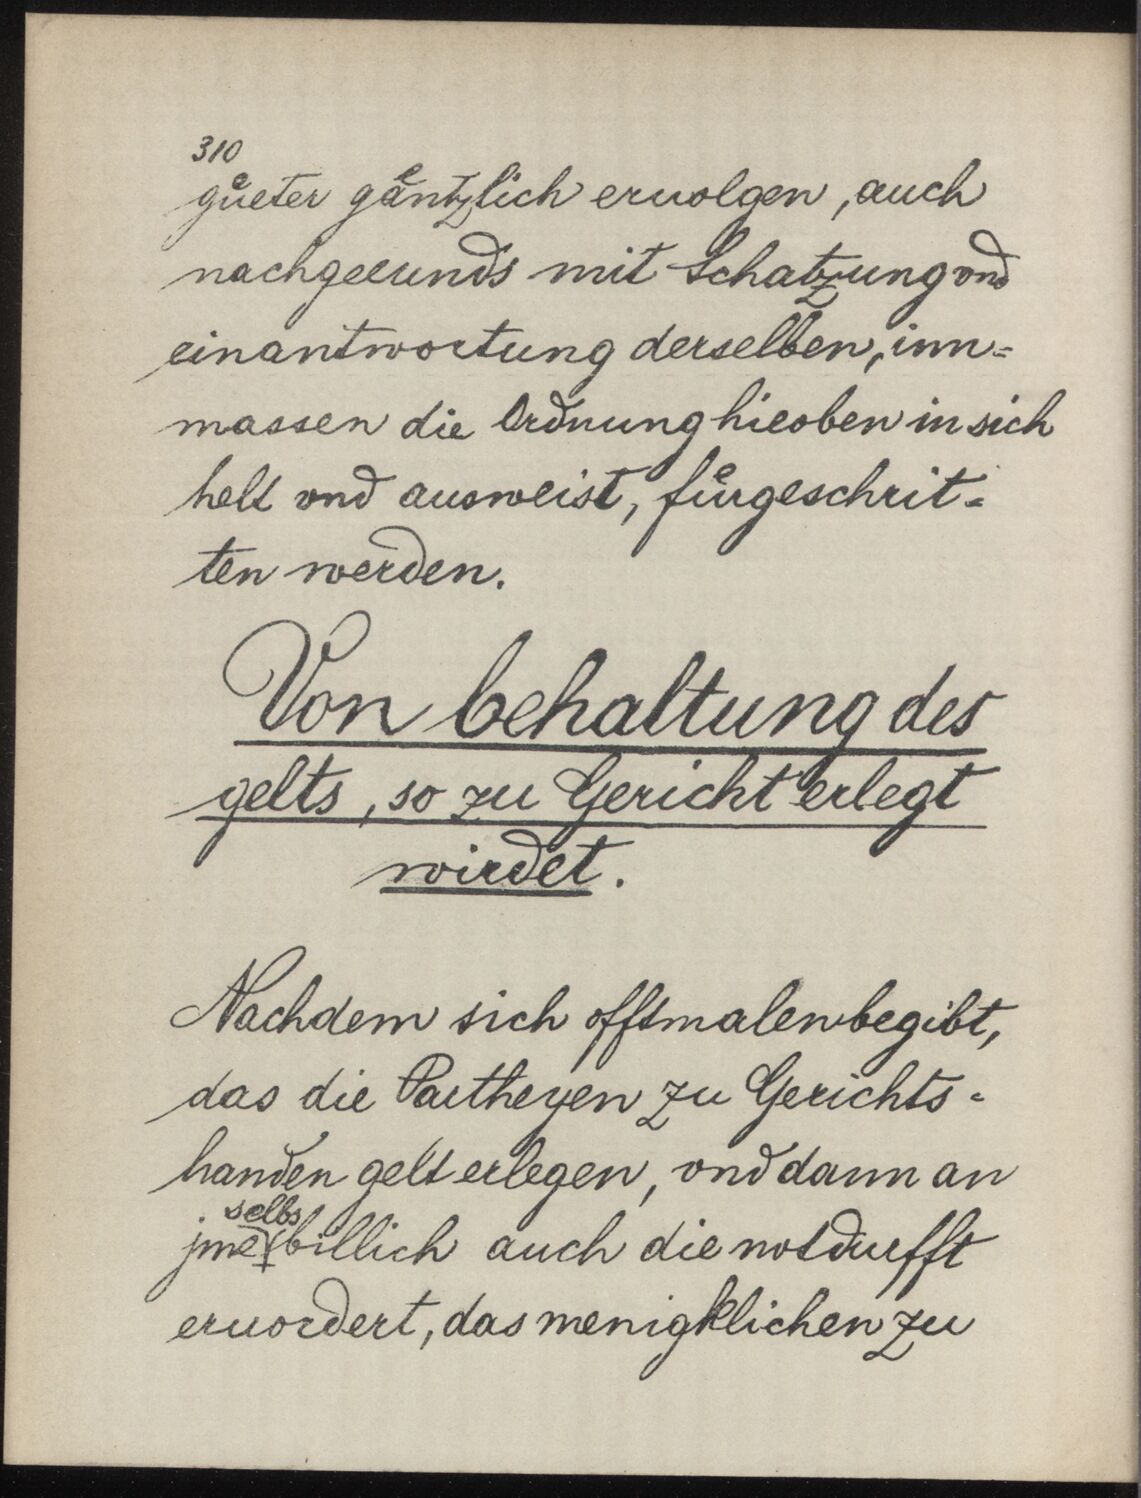 310
guͤeter gaͤntzlich eruolgen, auch
nachgeeunds mit Schatzung vnd
einantwortung derselben, inn=
massen die Ordnung hieoben in sich
helt vnd ausweist, fuͤrgeschrit=
ten werden.
Von behaltung des
gelts, so zu Gericht erlegt
wirdet.
Nachdem sich offtmalen begibt,
das die Partheyen zu Gerichts=
handen gelt erlegen, vnd dann an
selbs
jme billich auch die notdurfft
eruordert, das menigklichen zu